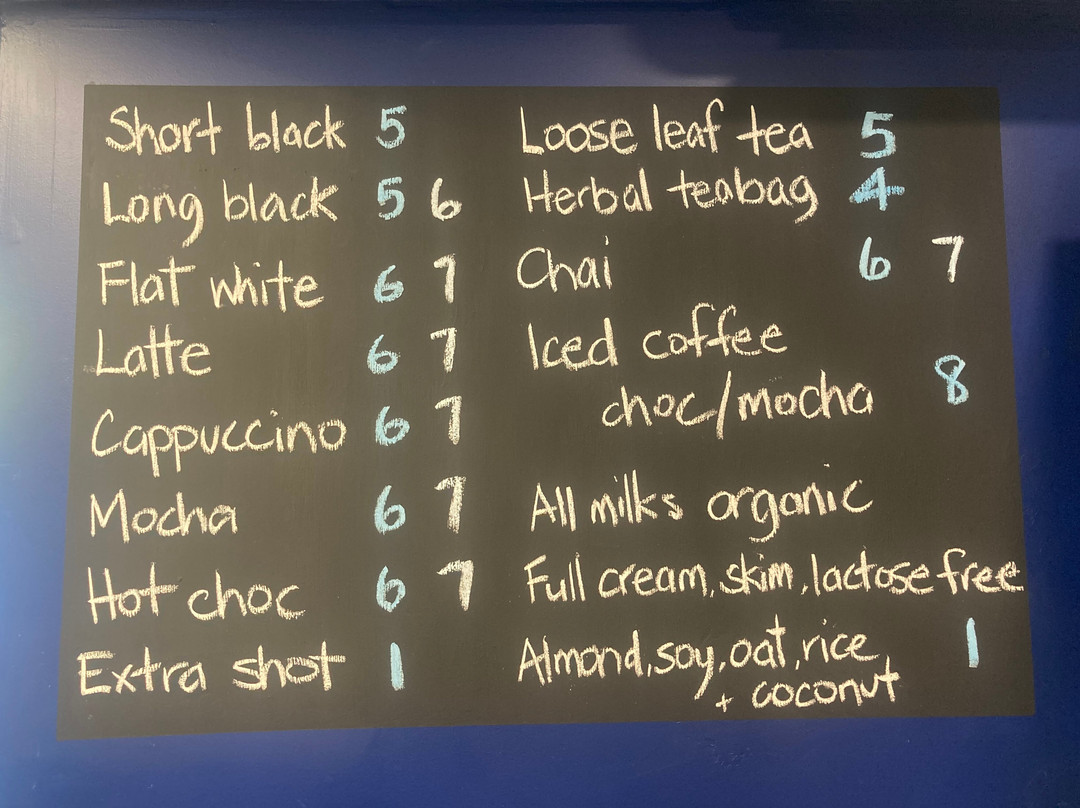 Short black 5
Long black 5 6
Flat white 6 7
Latte 6 7
Cappuccino 6 7
Mocha 6 7
Hot choc 6 7
Extra shot 1
Loose leaf tea 5
Herbal teabag 4
Chai 6 7
Iced coffee
choc/mocha 8
All milks organic
Full cream, skim, lactose free
Almond, soy, oat, rice 1
+ coconut